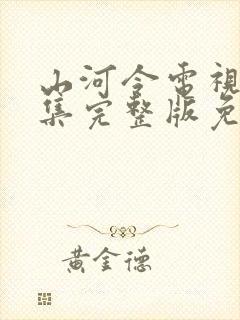 山河令電視
集完整版免
黃金德